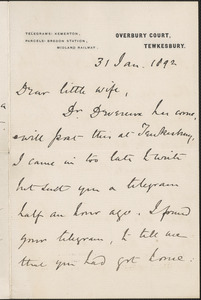 TELEGRAMS: KEMERTON,
PARCELS: BREDON STATION,
MIDLAND RAILWAY.
OVERBURY COURT,
TEWKESBURY.
31 Jan. 1892
Dear little wife,
Dr. Devereux has come,
& will post this at Tewkesbury,
I came in too late to write
but sent you a telegram
half an hour ago. I found
your telegram, to tell me
that you had got home.